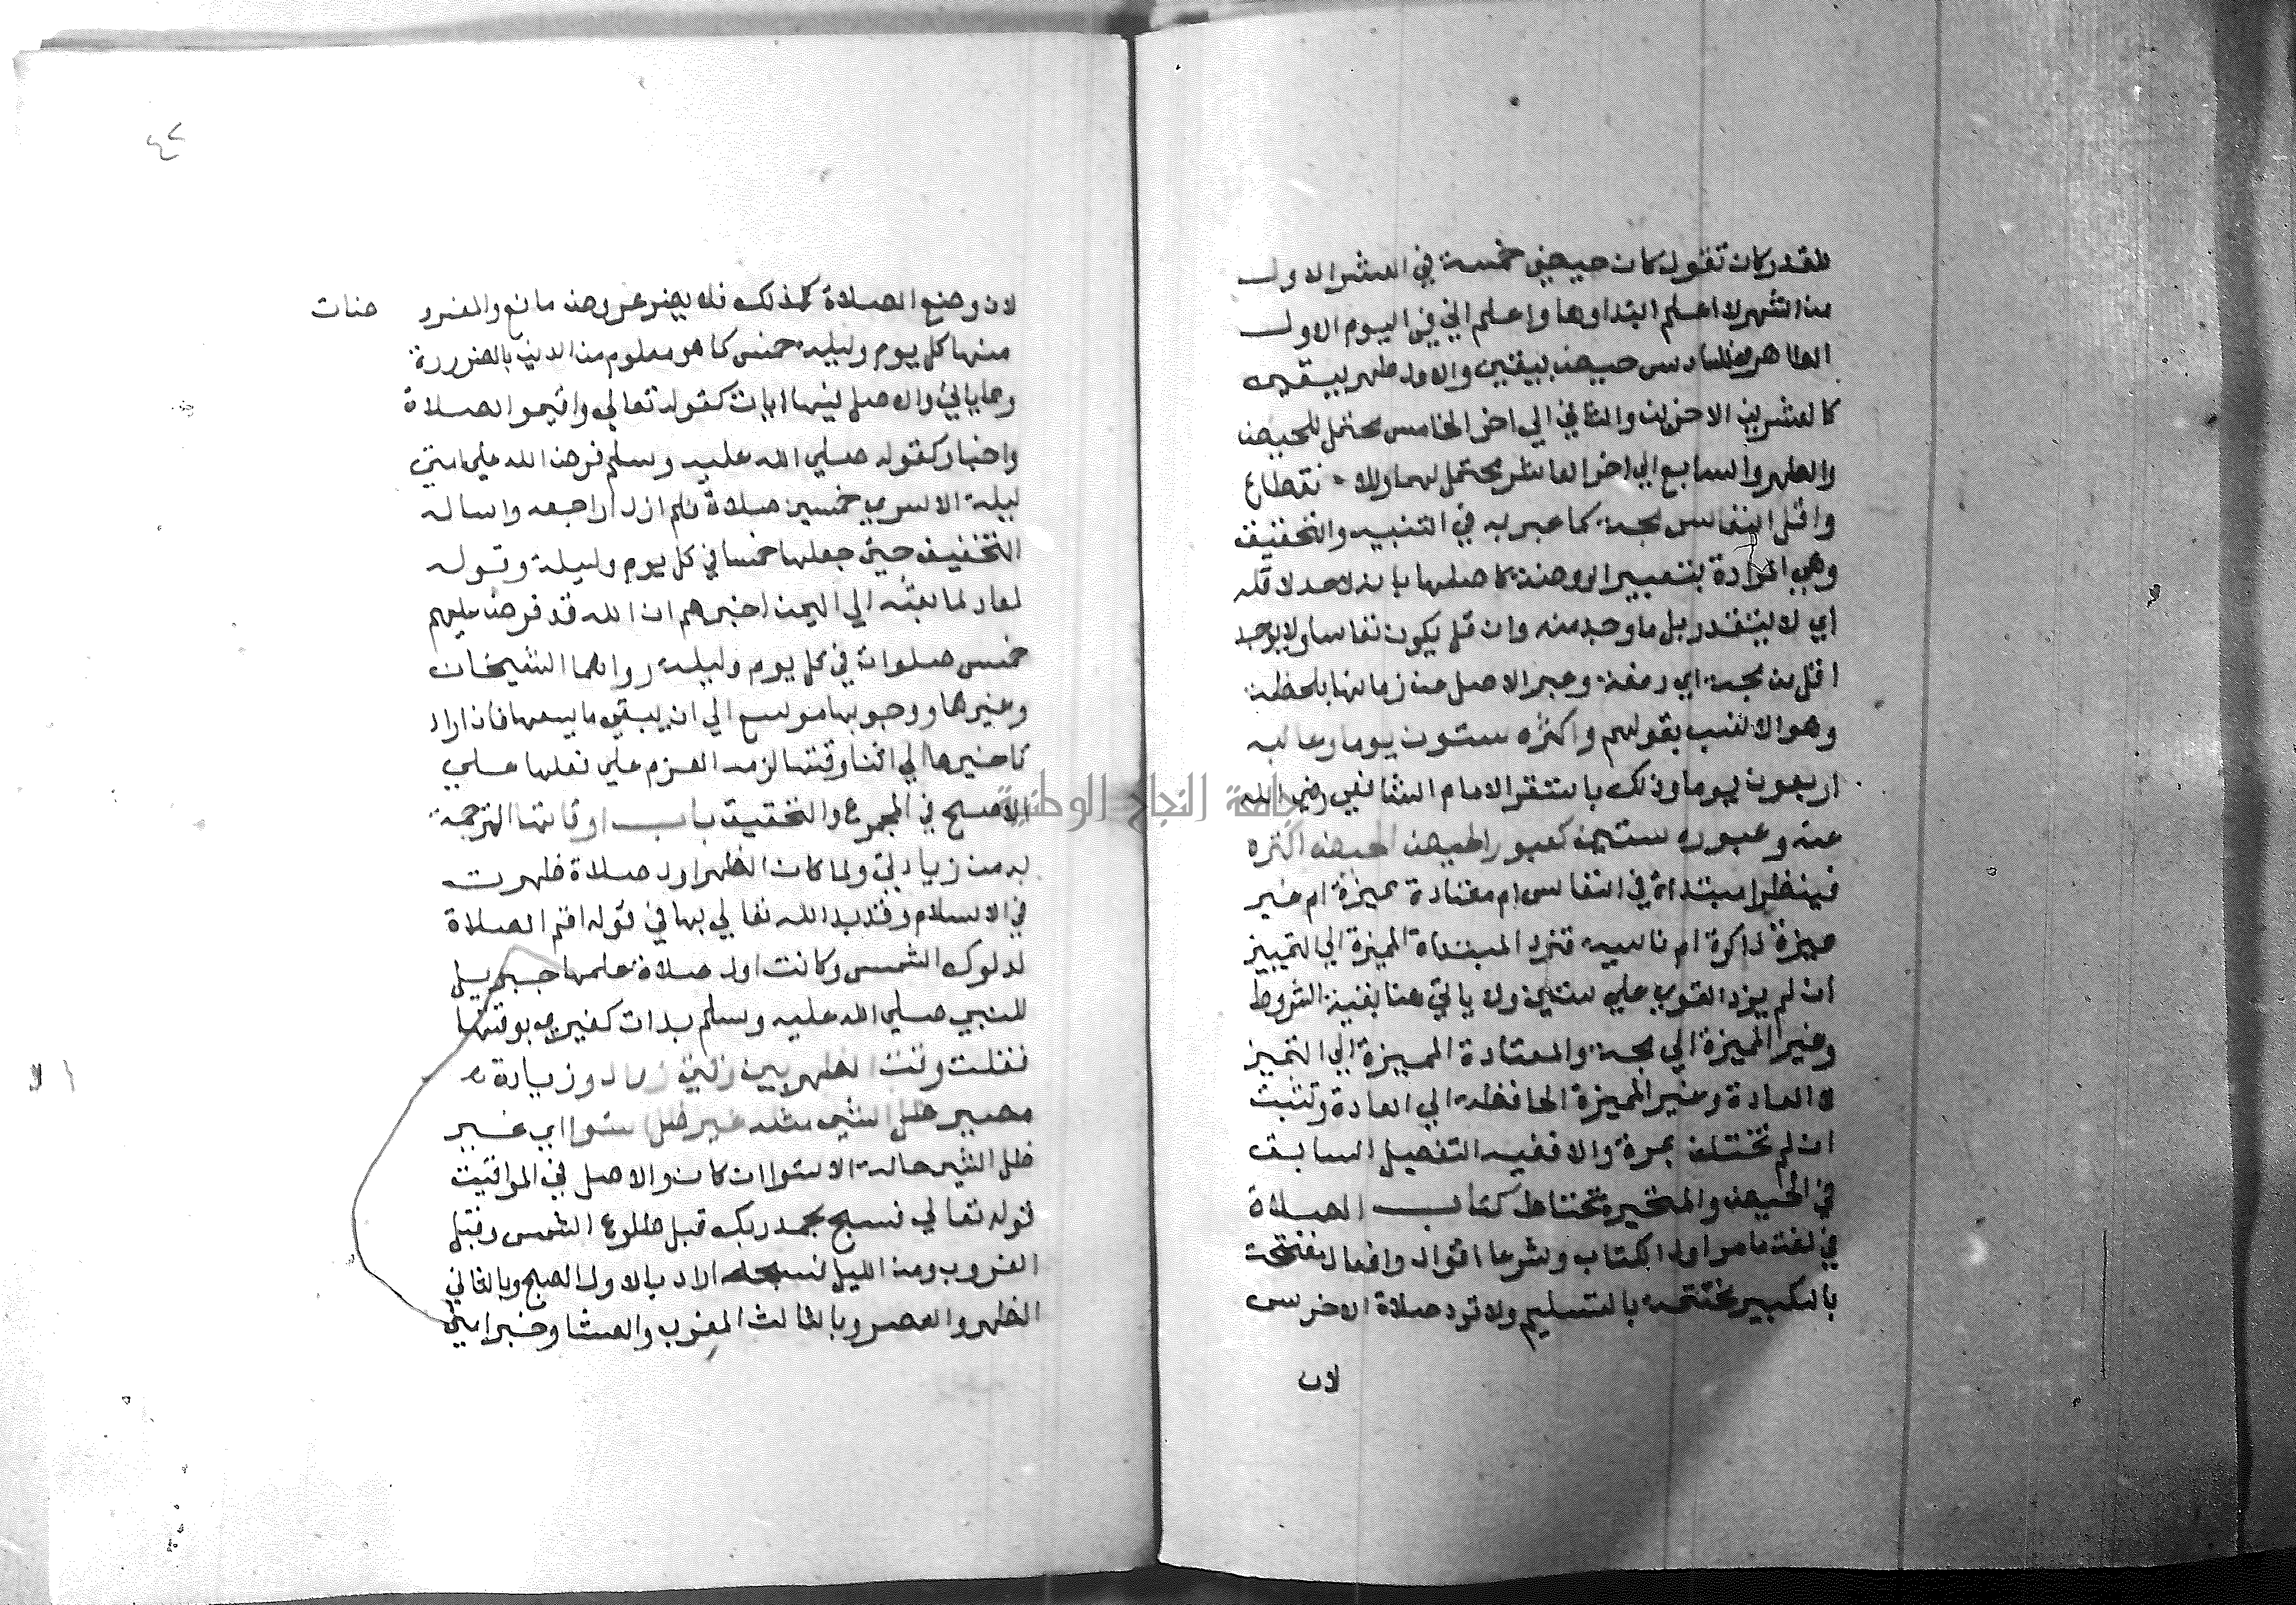 للقدر كان تقول كان حيضي خمسة في العشر الاول
من الشهر لا اعلم ابتداوها واعلم اني في اليوم الاول
الطاهر فالسادس حيض بيقين والاول طهر بيقين
كالعشرين الاخرين والثاني الي اخر الخامس محتمل للحيض
والطهر والسابع الي اخر العاشر محتمل لهما وللانقطاع
واقل النفاس مجة كما عبر به في التنبيه والتحقيق
وهي المرادة بتعبير الروضة كاصلها بانه لا حد لاقله
اي لا يتقدر بل ما وجد منه وان قل يكون نفاسا ولا يوجد
اقل من مجة اي دفعة وعبر الاصل عن زمانها بلحظة
وهو الانسب بقولهم واكثره ستون يوما وغالبه
اربعون يوما وذلك باستقرا الامام الشافعي رضي الله
عنه وعبوره ستين كعبور الحيض اكثره
فينظر امبتداة في النفاس ام معتادة مميزة ام غير
مميزة ذاكرة ام ناسية فترد المبتداة المميزة الي التمييز
ان لم يزد القوي علي ستين ولا ياتي هنا بقية الشروط
وغير المميزة الي مجة والمعتادة المميزة الي التميز
لا العادة وغير المميزة الحافظة الي العادة وتثبت
ان لم تختلف بمرة والا ففيه التفصيل السابق
في الحيض والمتحيرة تحتاط كتاب الصلاة
في لغة ما مر اول الكتاب وشرعا اقوال وافعال مفتتحة
بالتكبير مختتمة بالتسليم ولا ترد صلاة الاخرس
لان
٤٢
لان وضع الصلاة كذلك فلا يضر عروض مانع والمفرد صنات
منها كل يوم وليلة خمس كما هو معلوم من الدين بالضرورة
ومما ياتي والاصل فيها ايات كقوله تعالي واقيموا الصلاة
واخبار كقوله صلي الله عليه وسلم فرض الله علي امتي
ليلة الاسري خمسين صلاة فلم ازل اراجعه واساله
التخفيف حتي جعلها خمسا في كل يوم وليلة وقوله
لمعاد لما بعثه الي اليمن اخبرهم ان الله قد فرض عليهم
خمس صلوات في كل يوم وليلة رواهما الشيخان
وغيرها ووجوبها موسع الي ان يبقي ما يسعها فاذا اراد
تاخيرها الي اثنا وقتها لزمه العزم علي فعلها علي
الاصح في المجموع والتحقيق باب اوقاتها الترجمة
به من زيادتي ولما كان الظهر اول صلاة ظهرت
في الاسلام وقد بدا الله تعالي بها في قوله اقم الصلاة
لدلوك الشمس وكانت اول صلاة علمها جبريل
للنبي صلي الله عليه وسلم بدات كغيري بوقتها
فقلت وقت الظهر بين وقتي زوال وزيادة
مصير ظل الشي مثله غير ظل استوا اي غير
ظل الشي حالة الاستوا ان كان والاصل في المواقيت
قوله تعالي فسبح بحمد ربك قبل طلوع الشمس وقبل
الغروب ومن الليل فسبحه اراد بالاول الصبح وبالثاني
الظهر والعصر وبالثالث المغرب والعشا وخبر امني
جامعة النجاح الوطنية